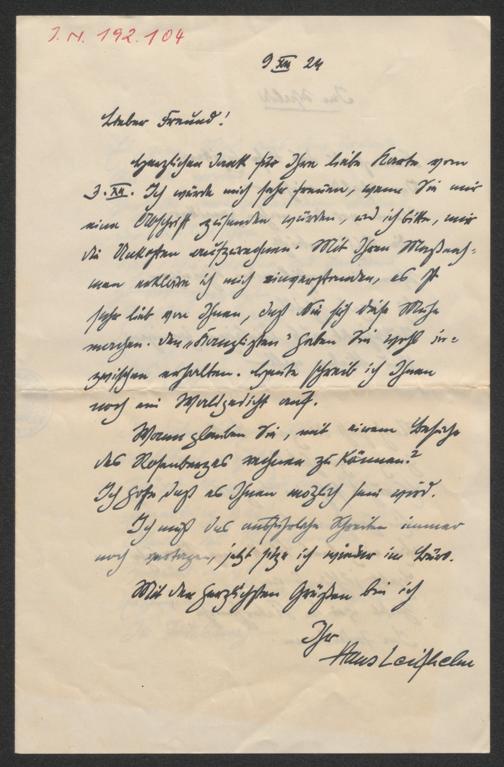 J. N. 192.104
9 XII 24
Lieber Freund!
Herzlichen Dank für Ihre liebe Karte vom
3. XII. Ich würde mich sehr freuen, wenn Sie mir
eine Abschrift zusenden würden, und ich bitte, mir
die Unkosten aufzurechnen. Mit Ihren Maßnah-
men erkläre ich mich einverstanden, es ist
sehr lieb von Ihnen, daß Sie sich diese Mühe
machen. Den „Kanzlisten“ haben Sie wohl in-
zwischen erhalten. Heute schreib ich Ihnen
noch ein Waldgedicht auf.
Wann glauben Sie, mit einem Besuche
des Rosenberges rechnen zu können?
Ich hoffe, daß es Ihnen möglich sein wird.
Ich muß das ausführliche Schreiben immer
noch vertagen, jetzt sitze ich wieder im Büro.
Mit den herzlichsten Grüßen bin ich
Ihr
Hans Leifhelm